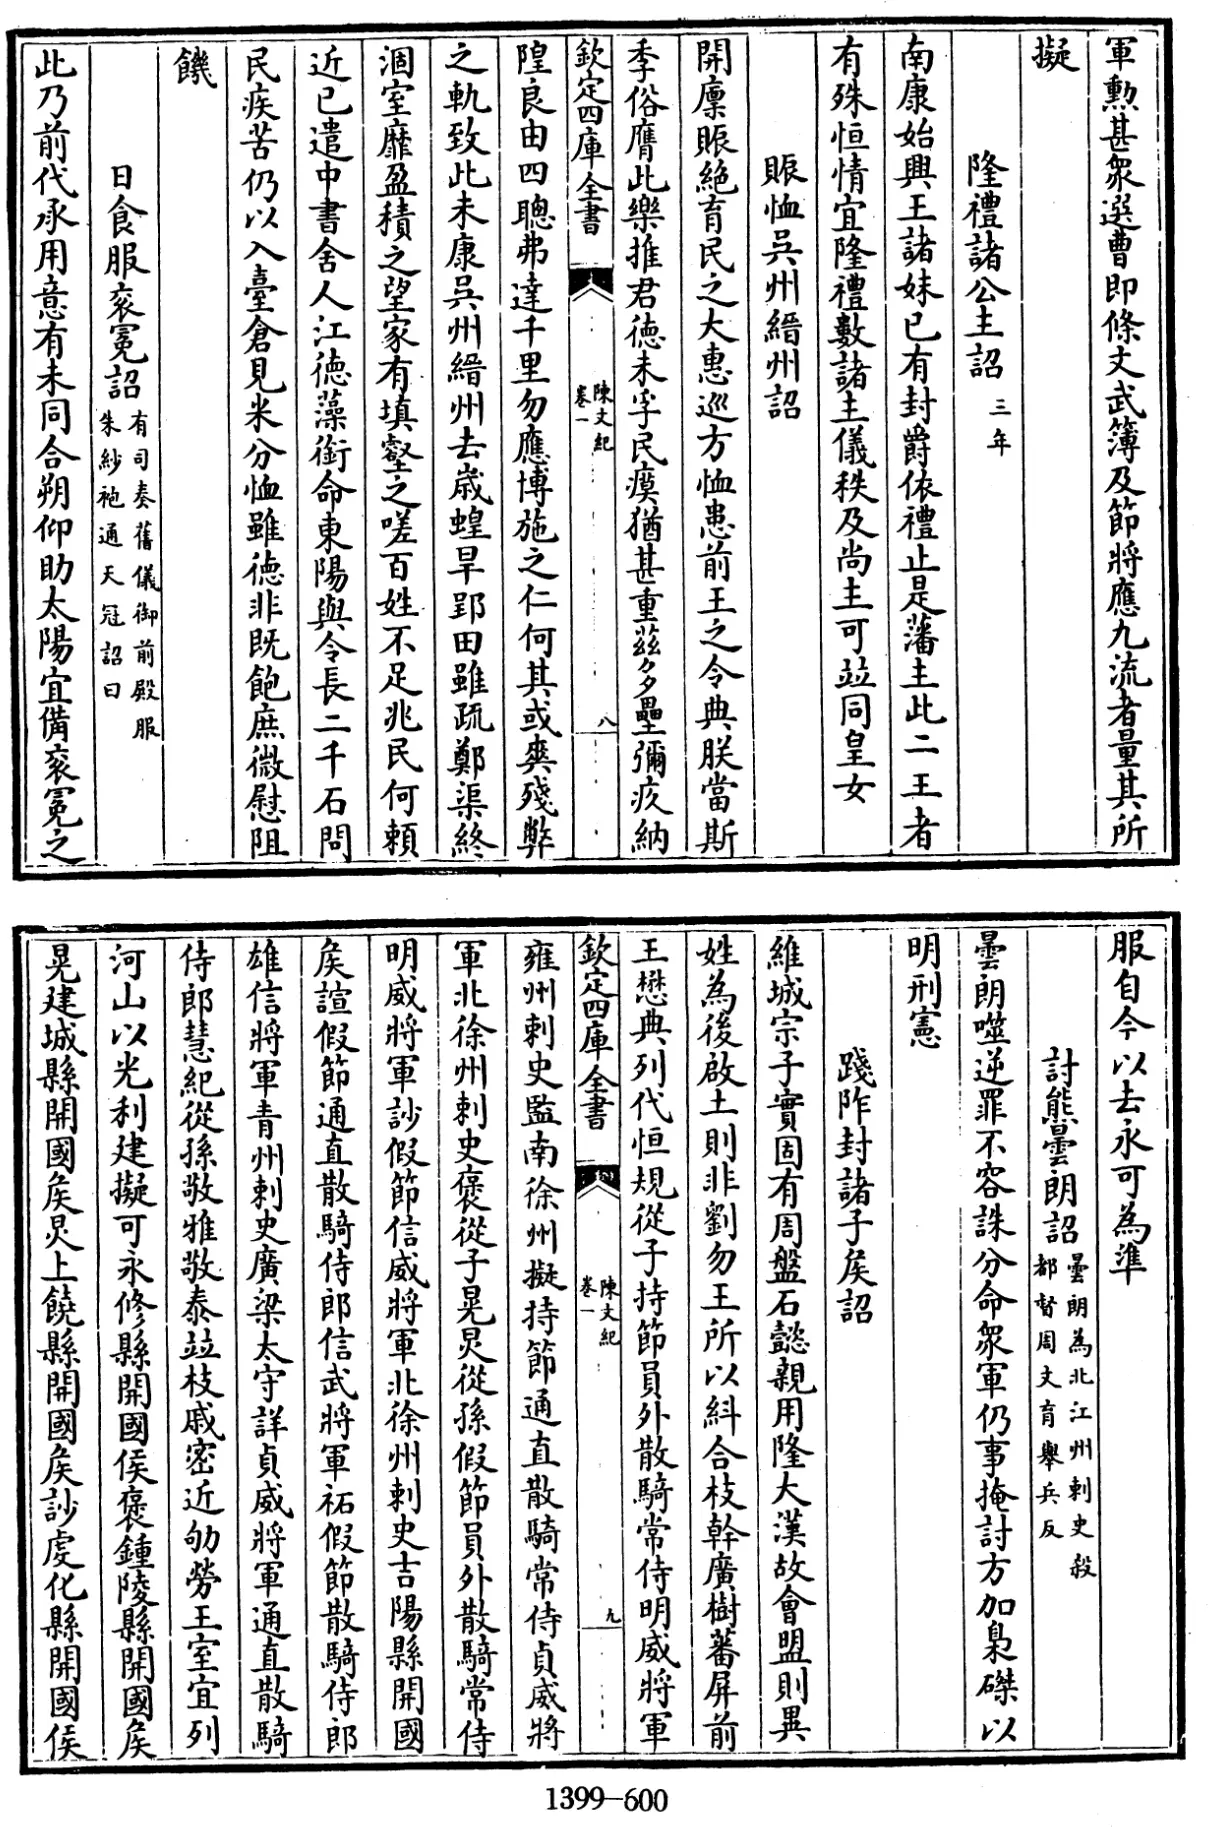 軍勲甚衆選曹即條文武簿及節將應九流者量其所
擬
隆禮諸公主詔三年
南康始興王諸妹已有封爵依禮止是藩主此二王者
有殊恒情宜隆禮數諸主儀秩及尚主可竝同皇女
賑恤吳州縉州詔
開廪賑絶育民之大惠巡方恤患前王之令典朕當斯
季俗膺此樂推君德未孚民瘼猶甚重茲多壘彌疚納
欽定四庫全書
陳文紀
卷一
八
隍良由四聰弗達千里勿應博施之仁何其或爽殘弊
之軌致此未康吳州縉州去歲蝗旱郢田雖疏鄭渠終
涸室靡盈積之望家有填壑之嗟百姓不足兆民何頼
近已遣中書舍人江德藻銜命東陽與令長二千石問
民疾苦仍以入臺倉見米分恤雖德非既飽庶微慰阻
饑
日食服衮冕詔有司奏舊儀御前殿服
朱紗袍通天冠詔曰
此乃前代承用意有未同合朔仰助太陽宜備衮冕之
服自今以去永可為準
討熊曇朗詔曇朗為北江州刺史殺
都督周文育舉兵反
曇朗噬逆罪不容誅分命衆軍仍事掩討方加梟磔以
明刑憲
踐阼封諸子矦詔
維城宗子實固有周盤石懿親用隆大漢故會盟則異
姓為後啟土則非劉勿王所以糾合枝幹廣樹蕃屏前
王懋典列代恒規從子持節員外散騎常侍明威將軍
欽定四庫全書
陳文紀
卷一
九
雍州刺史監南徐州擬持節通直散騎常侍貞威將
軍北徐州刺史褒從子晃炅從孫假節員外散騎常侍
明威將軍訬假節信威將軍北徐州刺史吉陽縣開國
矦諠假節通直散騎侍郎信武將軍祏假節散騎侍郎
雄信將軍青州刺史廣梁太守詳貞威將軍通直散騎
侍郎慧紀從孫敬雅敬泰竝枝戚密近劬勞王室宜列
河山以光利建擬可永修縣開國侯褒鍾陵縣開國矦
晃建城縣開國矦炅上饒縣開國矦訬䖍化縣開國侯
1399-600